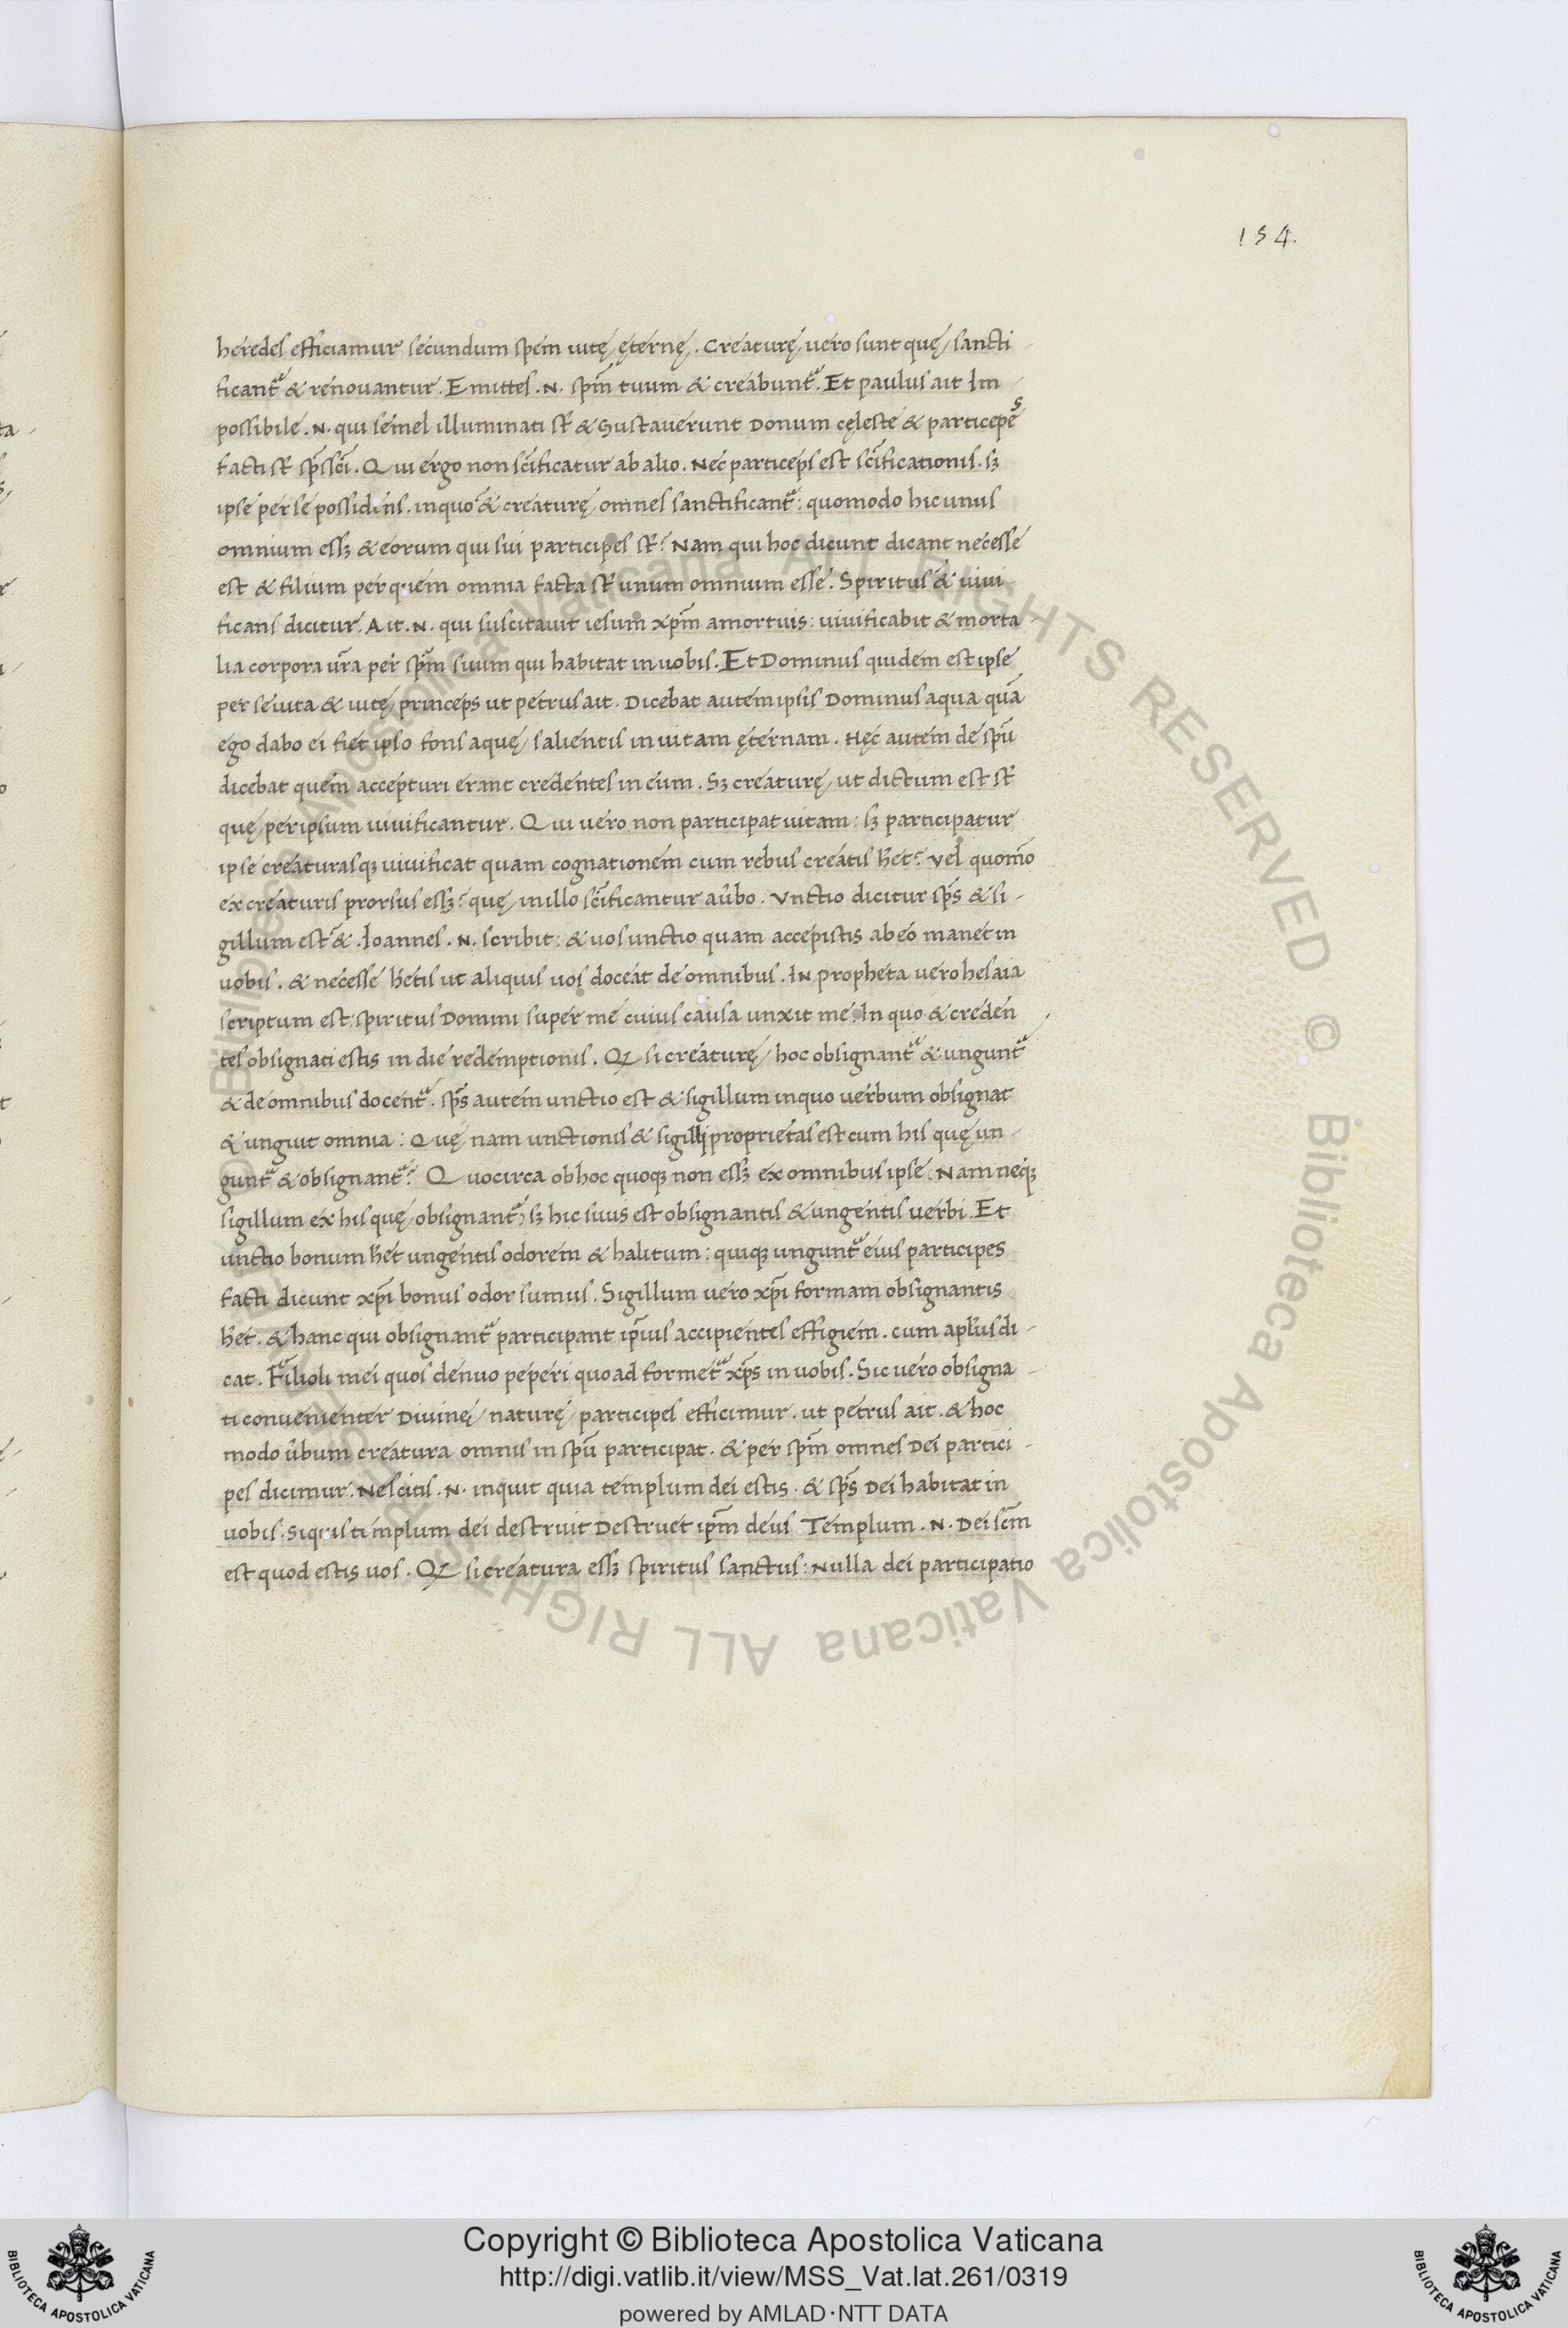 154.
heredes efficiamur secundum spem uitę ęternę. Creaturę uero sunt quę sancti-
ficant᷑ & renouantur. Emittes .N. sp̄m tuum & creabunt᷑. Et paulus ait Im-
possibile .N. qui semel illuminati st̄ & Gustauerunt Donum cęleste & participes
facti st̄ sp̄s sc̄i. Qui ergo non sc̄ificatur ab alio. Nec particeps est sc̄ificationis. sꝫ
ipse per se possidens. in quo & creaturę omnes sanctificant᷑: quomodo hic unus
omnium essꝫ & eorum qui sui participes st̄? Nam qui hoc dicunt dicant necesse
est & filium per quem omnia facta st̄ unum omnium esse. Spiritus & uiui-
ficans dicitur. Ait .N. qui suscitauit iesum xp̄m a mortuis: uiuificabit & morta-
lia corpora ur̄a per sp̄m suum qui habitat in uobis. Et Dominus quidem est ipse
per se uita & uitę princeps ut petrus ait. Dicebat autem ipsis Dominus aqua quā
ego dabo ei fiet ipso fons aquę salientis in uitam ęternam. Hęc autem de sp̄u
dicebat quem accepturi erant credentes in eum. Sꝫ creaturę ut dictum est st̄
quę per ipsum uiuificantur. Qui uero non participat uitam: sꝫ participatur
ipse creaturasqꝫ uiuificat quam cognationem cum rebus creatis h̄et? Vel quomō
ex creaturis prorsus essꝫ? quę in illo sc̄ificantur a ūbo. Vnctio dicitur sp̄s & si-
gillum est &. Ioannes .N. scribit: & uos unctio quam accepistis ab eo manet in
uobis. & necesse h̄etis ut aliquis uos doceat de omnibus. In propheta uero hesaia
scriptum est: spiritus Domini super me cuius causa unxit me. In quo & creden-
tes obsignati estis in die redemptionis. Qꝫ si creaturę hoc obsignant᷑ & ungunt᷑
& de omnibus docent᷑. sp̄s autem unctio est & sigillum in quo uerbum obsignat
& unguit omnia: Quę nam unctionis & sigilli proprietas est cum his quę un-
gunt᷑ & obsignant᷑? Quocirca ob hoc quoqꝫ non essꝫ ex omnibus ipse. Nam neqꝫ
sigillum ex his quę obsignant᷑, sꝫ hic suus est obsignantis & ungentis uerbi. Et
unctio bonum h̄et ungentis odorem & halitum: quiqꝫ ungunt᷑ eius participes
facti dicunt xp̄i bonus odor sumus. Sigillum uero xp̄i formam obsignantis
h̄et. & hanc qui obsignant᷑ participant ip̄ius accipientes effigiem. cum apl̄us di-
cat. Filioli mei quos denuo peperi quoad formet᷑ xp̄s in uobis. Sic uero obsigna-
ti conuenienter Diuinę naturę participes efficimur. ut petrus ait. & hoc
modo ūbum creatura omnis in sp̄u participat. & per sp̄m omnes Dei partici-
pes dicimur. Nescitis .N. inquit quia templum dei estis. & sp̄s Dei habitat in
uobis. Si quis templum dei destruit Destruet ip̄m deus Templum .N. Dei sc̄m
est quod estis uos. Qꝫ si creatura essꝫ spiritus sanctus: Nulla dei participatio
Copyright © Biblioteca Apostolica Vaticana
http://digi.vatlib.it/view/MSS_Vat.lat.261/0319
powered by AMLAD·NTT DATA